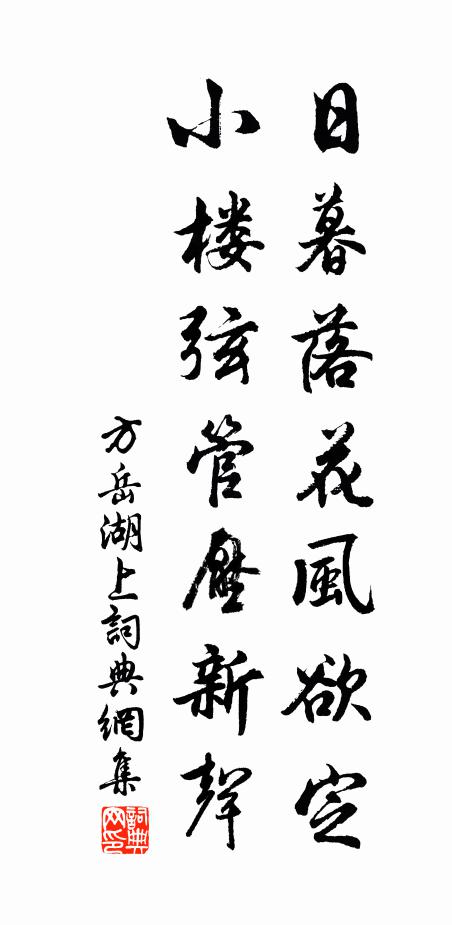 日暮落花風欲定
小楼弦管壓新聲
方岳湖上詞典網集
詞典
网印